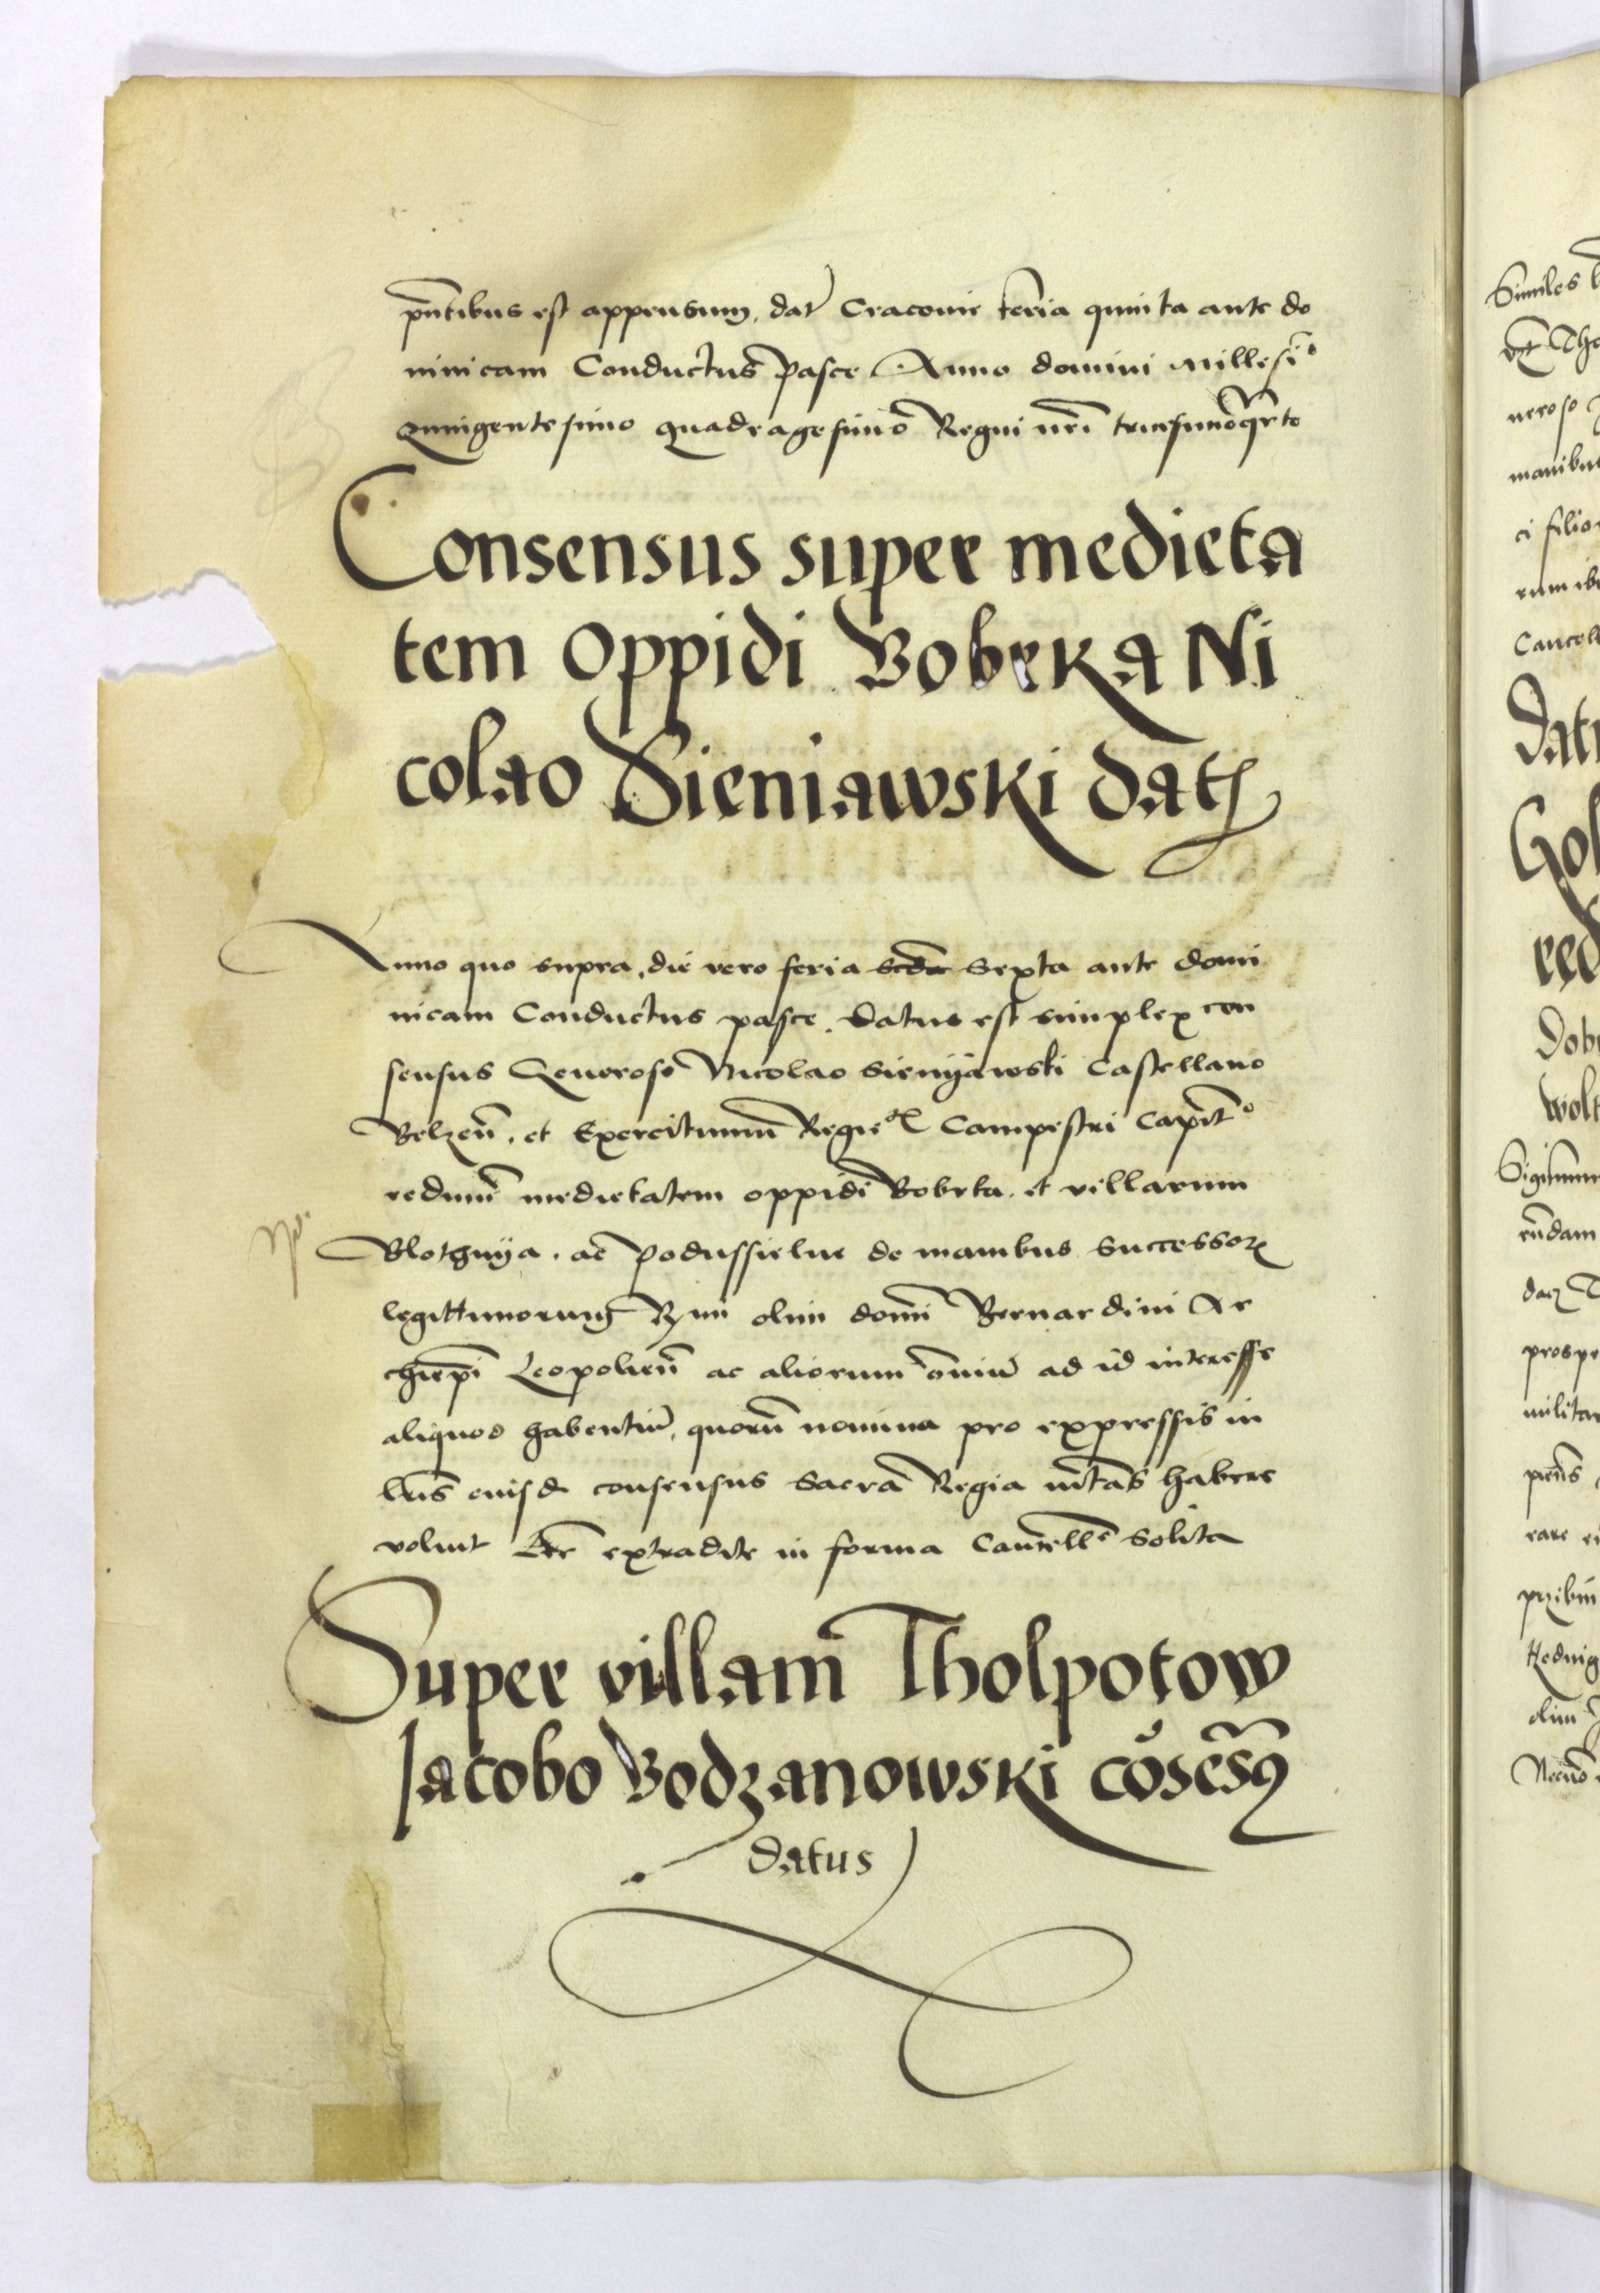 pñtibus est appensum, dat Cracovie feria quinta ante do
minicam Conductus Pasce Anno domini Millesiº
Quingentesimo quadragesimo Regni nri tricesimoqrto
Consensus super medieta
tem oppidi Bobrka Ni
colao Sieniawski dat9
Anno quo supra, die vero feria scda sexta ante domi
nicam Conductus pasce. Datus est simplex con
sensus Generoso Nicolao Sienyawski Castellano
Belzeñ. et Exercituum Regie Campestri Capitº
redimi medietatem oppidi Bobrka. et villarum
Nº
Blothnya. ac Podussielne de manibus successor
legittimorum R mi olim domi Bernardini Ar
chiepi Leopolieñ ac aliorum omniu ad id interesse
aliquod habentiu, quoru nomina pro expressis in
lris euisd consensus Sacra Regia mtas habere
voluit Lre extradite in forma Cancelle Solita
Super villam Tholpotow
Jacobo Bodzanowski cosesu9
datus
Similes
neroso
manibus
ci filior
rum ibi
Cancell
Dat
Gol
red
Dob
wolt
Sigismun
endam
prospe
militar
olim